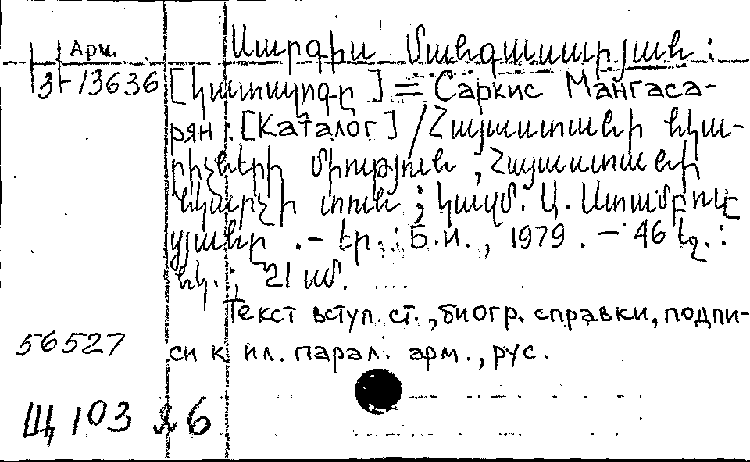 Арм.
Սարգիս Մանգասարյան :
3-13636
[Կատալոգ] = Саркис Мангаса-
рян : [Каталог] / Հայաստանի նկա-
րիչների միություն, Հայաստանի
նկարչի տուն ; կազմ. Ա.
. – Եր. : Б.и., 1979. – 46 էջ. :
նկ. ; 21 սմ.
Текст вступ. ст., биогр. справки, подпи-
56527
си к ил. парал. арм., рус.
Щ103 26